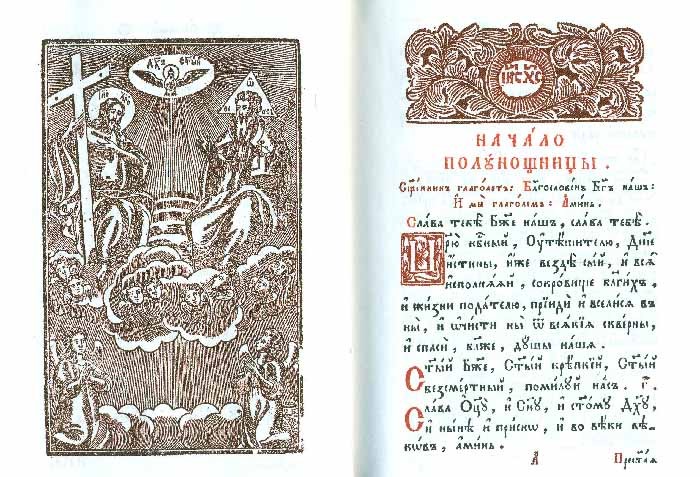 Дх҃ъ ст҃ый
ІС҃ ХС҃
НАЧА́ЛО
ПОЛУ́НОЩНИЦЫ.
Сщ҃е́нникъ глаго́летъ: Благослове́нъ Бг҃ъ на́шъ:
И҆ мы̀ глаго́лемъ: А҆ми́нь.
Сла́ва тебѣ̀ Бж҃е на́шъ, сла́ва тебѣ̀.
Цр҃ю̀ нбⷭ҇ный, Оу҆тѣ́шителю, Дш҃е
и҆́стины, и҆́же вездѣ̀ сы́й, и҆ всѧ̑
и҆сполнѧ́ѧй, сокро́вище благи́хъ,
и҆ жи́зни пода́телю, прїидѝ и҆ всели́сѧ въ
ны̀, и҆ ѡ҆чи́сти ны̀ ѿ всѧ́кїѧ скве́рны,
и҆ спасѝ, бл҃же, дꙋ́шы на́шѧ.
Ст҃ы́й Бж҃е, Ст҃ы́й крѣ́пкїй, Ст҃ы́й
безсме́ртный, поми́лꙋй на́съ. г҃.
Сла́ва Ѻ҆ц҃ꙋ̀, и҆ Сн҃ꙋ, и҆ ст҃о́мꙋ Дх҃ꙋ,
и҆ ны́нѣ и҆ при́снѡ, и҆ во вѣ́ки вѣ-
кѡ́въ, а҆ми́нь.
а҃ Прест҃а́ѧ